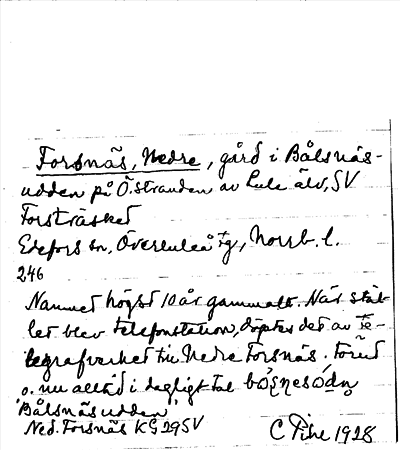 Forsnäs, Nedre, gård i Bålsnäs-
udden på Ö. stranden av Lule älv, SV
Forsträsket
Edefors sn, Överluleå tg, Norrb. l.
246
Namnet högst 10 år gammalt. När stäl-
let blev telefonstation, döptes det av Te-
legrafverket till Nedre Forsnäs. Förut
o. nu alltid i dagligt tal
"Bålsnäsudden"
Ned. Forsnäs KG 29 SV
C Pihl 1928